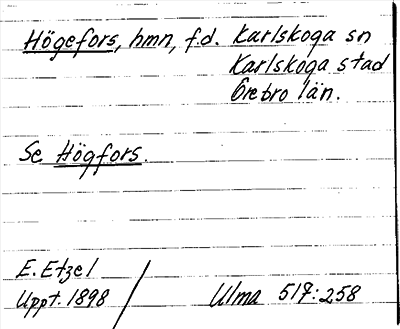 Högefors, hmn, f.d. Karlskoga sn
Karlskoga stad
Örebro län.
Se Högfors.
E. Etzel
Uppt. 1898 / Ulma 517:258